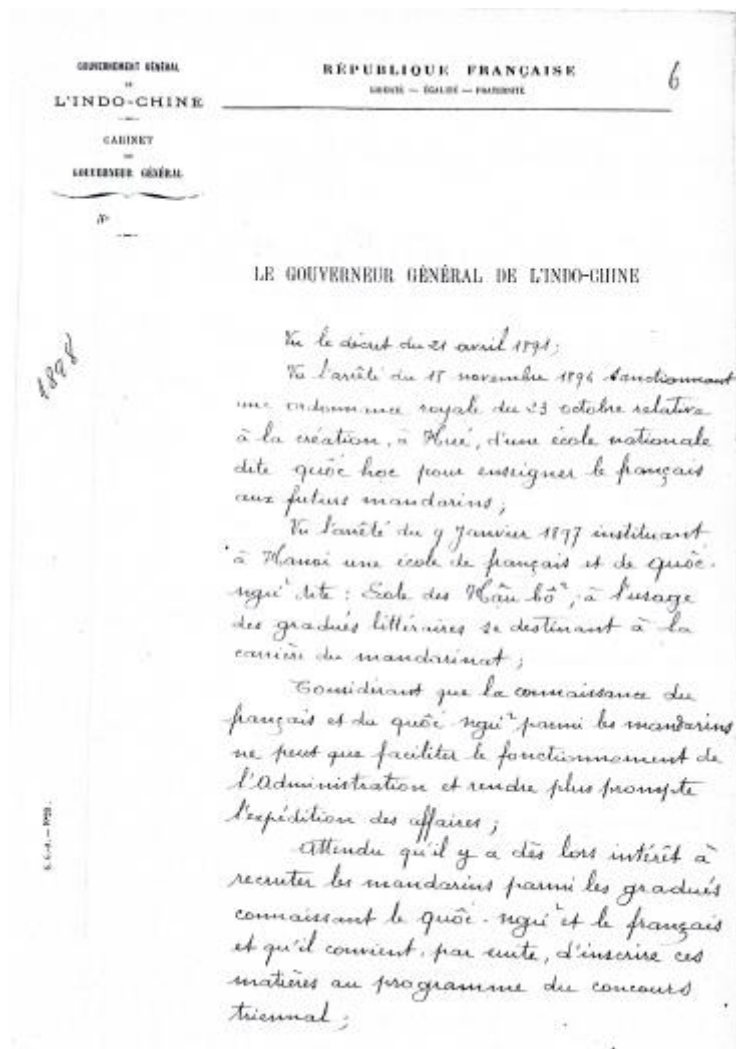 GOUVERNEMENT GÉNÉRAL
DE
L'INDO-CHINE
CABINET
DU
GOUVERNEUR GÉNÉRAL
N°
RÉPUBLIQUE FRANÇAISE
LIBERTÉ — ÉGALITÉ — FRATERNITÉ
6
LE GOUVERNEUR GÉNÉRAL DE L'INDO-CHINE
1898
Vu le décret du 21 avril 1891;
Vu l'arrêté du 18 novembre 1896 sanctionnant
une ordonnance royale du 23 octobre relative
à la création, à Hué, d'une école nationale
dite quôc hoc pour enseigner le français
aux futurs mandarins;
Vu l'arrêté du 9 Janvier 1897 instituant
à Hanoi une école de français et de quôc-
ngu dite : Ecole des Hâu bô, à l'usage
des gradués littéraires se destinant à la
carrière du mandarinat;
Considérant que la connaissance du
français et du quôc ngu parmi les mandarins
ne peut que faciliter le fonctionnement de
l'Administration et rendre plus prompte
l'expédition des affaires;
Attendu qu'il y a dès lors intérêt à
recruter les mandarins parmi les gradués
connaissant le quôc-ngu et le français
et qu'il convient, par suite, d'inscrire ces
matières au programme du concours
triennal;